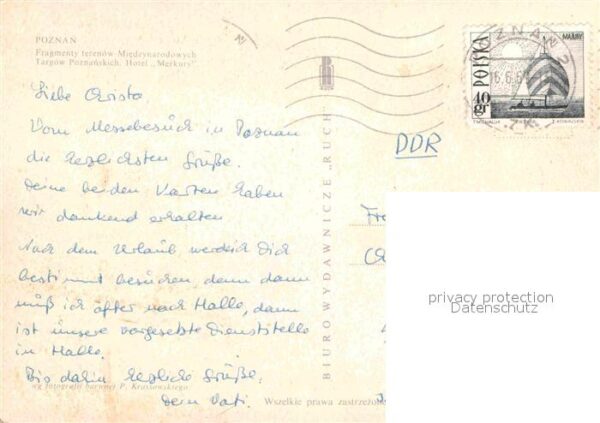 POZNAŃ
Fragmenty terenów Międzynarodowych
Targów Poznańskich. Hotel „Merkury"
Liebe Christa.
Vom Messebesuch in Poznan
die herzlichsten Grüße.
Deine beiden Karten haben
wir dankend erhalten
Nach dem Urlaub werde ich Dich
bestimmt besuchen, denn dann
muß ich öfter nach Halle, dann
ist unsere vorgesetzte Dienststelle
in Halle.
Bis dahin herzliche Grüße.
wg fotografii barwnej P. Krassowskiego
Dein Vati.
Wszelkie prawa zastrzeżone
BIURO WYDAWNICZE „RUCH"
POZNAŃ 2
16.6.6
POLSKA
MAŁY
10 gr
DDR
Fr
privacy protection
Datenschutz